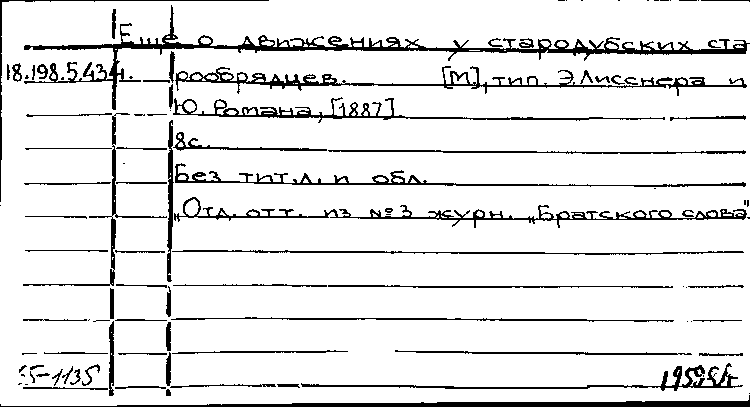 Еще о движениях у стародубских ста
18.198.5.434. рообрядцев. [М], тип. Э.Лисснера и
Ю. Романа, [1887].
8с.
Без тит.л. и обл.
"Отд. отт. из №3 журн. „Братского слова"
55-1135